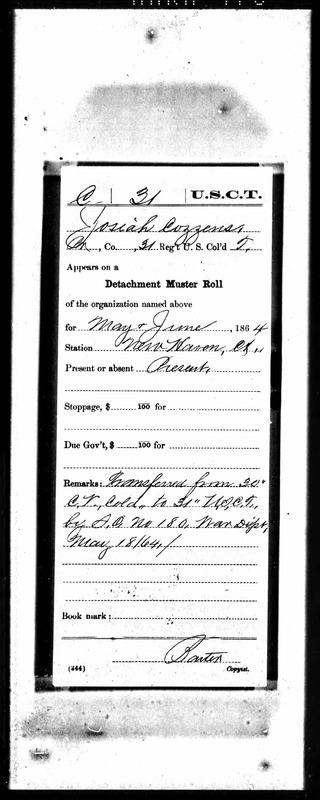 C | 31 | U.S.C.T.
Josiah Cozzens,
Pvt, Co. , 31 Reg't U. S. Col'd T.
Appears on a
Detachment Muster Roll
of the organization named above
for May & June , 1864
Station New Haven, Ct.,
Present or absent Present,
Stoppage, $ 100 for
Due Gov't, $ 100 for
Remarks: Transferred from 30"
C.V., Cold., to 31" U.S.C.T.,
by S.O. No 180, War Dept,
May 18/64,/
Book mark:
Baxter
(344) Copyist.